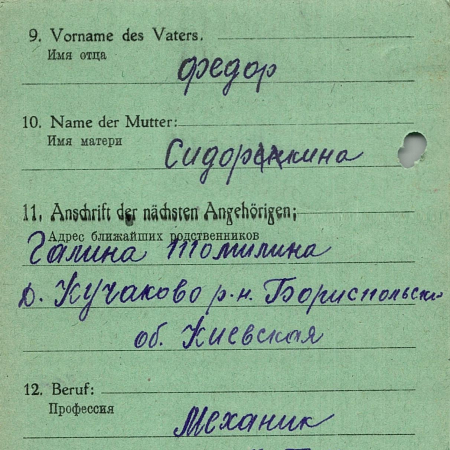 9. Vorname des Vaters.
Имя отца
Федор
10. Name der Mutter:
Имя матери
11. Anschrift der nächsten Angehörigen;
Адрес ближайших родственников
Галина Томилина
д. Кучаково р.н. Бориспольский
об. Киевская
12. Beruf:
Профессия
Механик